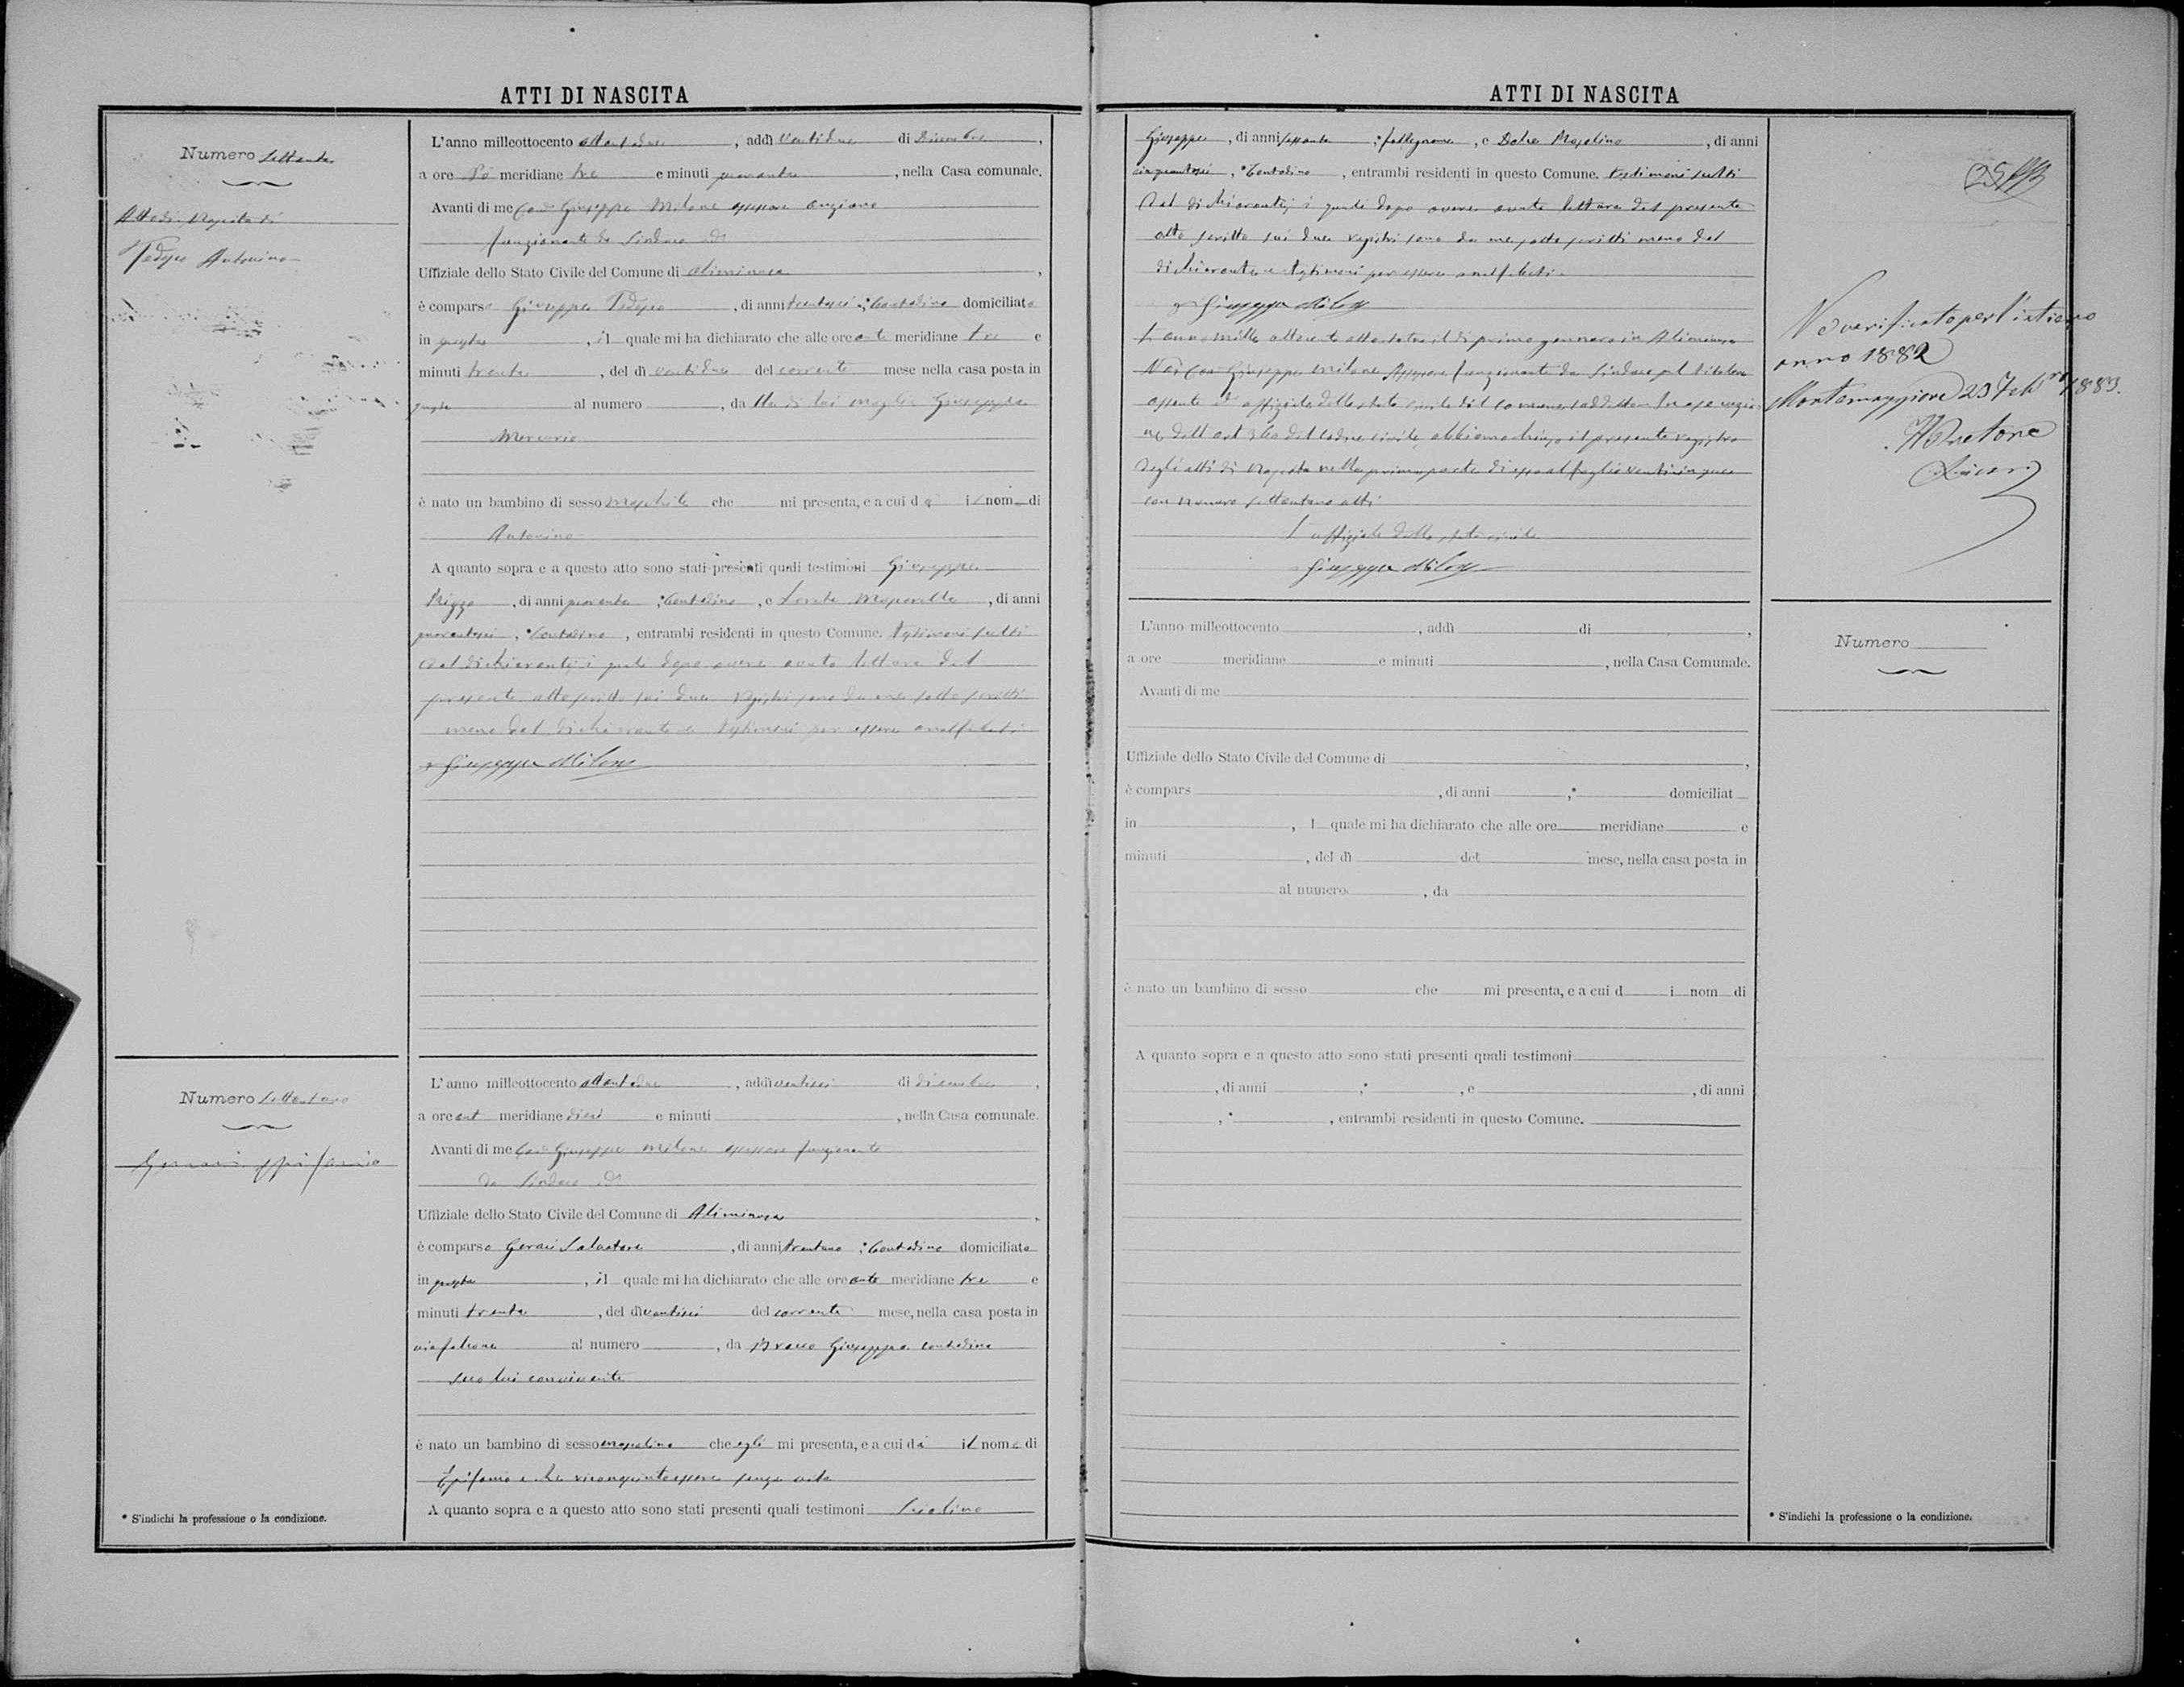 ATTI DI NASCITA
Numero settanta
Atto di Nascita di
Tedesco Antonino
L'anno milleottocento ottantadue, addì ventidue di Dicembre,
a ore Po meridiane tre e minuti quaranta, nella Casa comunale.
Avanti di me Giuseppe Milone assessore anziano
funzionante da Sindaco
Uffiziale dello Stato Civile del Comune di Aliminusa,
è comparso Giuseppe Tedesco, di anni trentasei, * Contadino domiciliato
in questa, il quale mi ha dichiarato che alle ore ante meridiane tre e
minuti trenta, del dì ventidue del corrente mese nella casa posta in
al numero , da lla di lui moglie Giuseppa
Mercurio
è nato un bambino di sesso maschile che mi presenta, e a cui dà il nom di
Antonino
A quanto sopra e a questo atto sono stati presenti quali testimoni Giuseppe
Rizzo, di anni quaranta, * Contadino, e , di anni
quarantasei, * Contadino, entrambi residenti in questo Comune. Testimoni scelti
dal dichiarante, i quali dopo avere avuto lettura del
presente atto scritto sui due registri sono da me sottoscritti
meno del dichiarante e testimoni per essere analfabeti
Giuseppe Milone
Numero settantuno
Geraci Epifanio
L'anno milleottocento ottantadue, addì ventisei di dicembre,
a ore ant meridiane dieci e minuti , nella Casa comunale.
Avanti di me Giuseppe Milone assessore funzionante
da Sindaco
Uffiziale dello Stato Civile del Comune di Aliminusa,
è comparso Geraci Salvatore, di anni trentuno, * Contadino domiciliato
in questa, il quale mi ha dichiarato che alle ore ante meridiane tre e
minuti trenta, del dì ventisei del corrente mese, nella casa posta in
via al numero , da Giuseppa contadina
seco lui convivente
è nato un bambino di sesso mascolino che egli mi presenta, e a cui dà il nome di
Epifanio e che riconosciuto essere senza vita
A quanto sopra e a questo atto sono stati presenti quali testimoni
* S'indichi la professione o la condizione.
ATTI DI NASCITA
Giuseppe, di anni sessanta, * falegname, e Dolce , di anni
cinquantasei, * Contadino, entrambi residenti in questo Comune. testimoni scelti
dal dichiarante, i quali dopo avere avuto lettura del presente
atto scritto sui due registri sono da me sottoscritti meno del
dichiarante e testimoni per essere analfabeti
Giuseppe Milone
L'anno mille ottocento ottantatre, il dì primo gennaro in Aliminusa
Noi Giuseppe Milone Assessore funzionante da Sindaco pel titolare
assente ed uffiziale dello stato civile del comune suddetto In esecuzio
ne dell'art 360 del codice civile abbiamo chiuso il presente registro
degli atti di Nascita nella prima parte di esso al foglio venticinque
con numero settantuno atti
L'uffiziale dello stato civile
Giuseppe Milone
25
Verificato per l'intiero
anno 1882
Montemaggiore 23 Feb 1883.
Il Pretore
L'anno milleottocento , addì di ,
a ore meridiane e minuti , nella Casa Comunale.
Avanti di me
Uffiziale dello Stato Civile del Comune di ,
è compars , di anni , * domiciliat
in , l quale mi ha dichiarato che alle ore meridiane e
minuti , del dì del mese, nella casa posta in
al numero , da
è nato un bambino di sesso che mi presenta, e a cui d i nom di
A quanto sopra e a questo atto sono stati presenti quali testimoni
, di anni , * , e , di anni
, * , entrambi residenti in questo Comune.
Numero
* S'indichi la professione o la condizione.